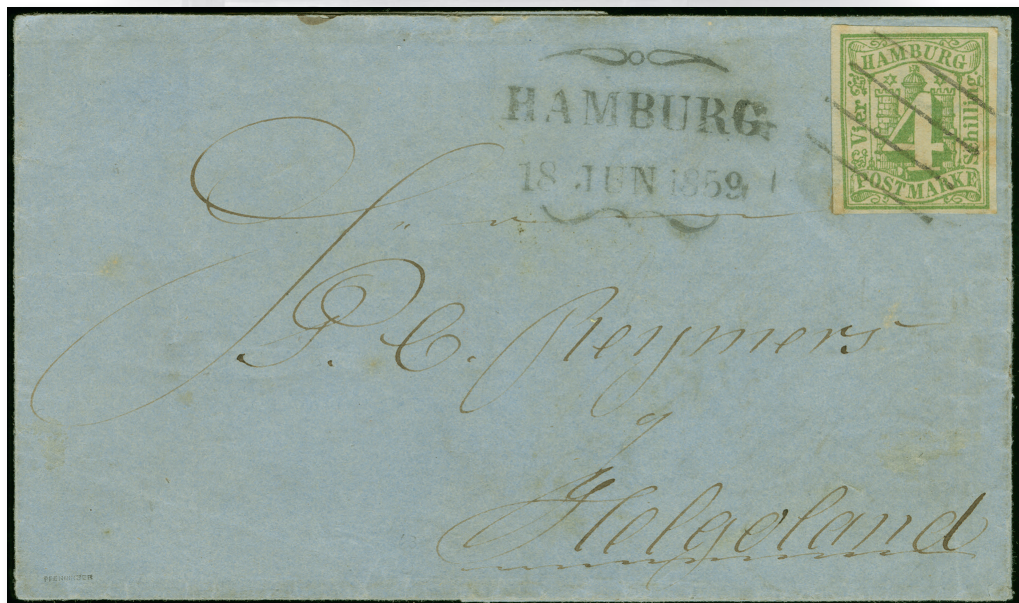 HAMBURG
18 JUN 1859
HAMBURG
Vier
4
Schilling
POSTMARKE
P. C. Reymers
Helgoland